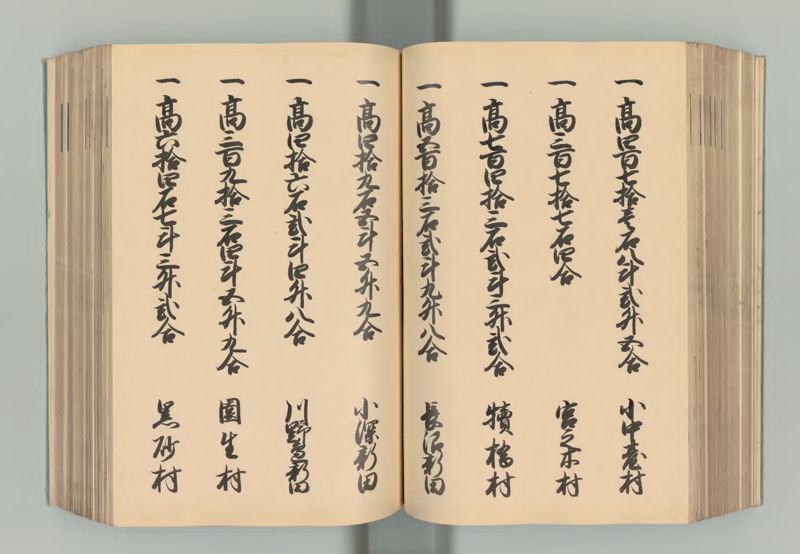 一 高四百七拾壱石八斗弐升五合 小中臺村
一 高三百七拾七石四合 宮之木村
一 高七百四拾三石弐斗三升弐合 犢橋村
一 高五百拾三石弐斗九升八合 長沼新田
一 高四拾九石五斗五升九合 小深新田
一 高四拾六石弐斗四升八合 川野邊新田
一 高三百九拾三石四斗五升九合 園生村
一 高六拾四石七斗三升弐合 黒砂村